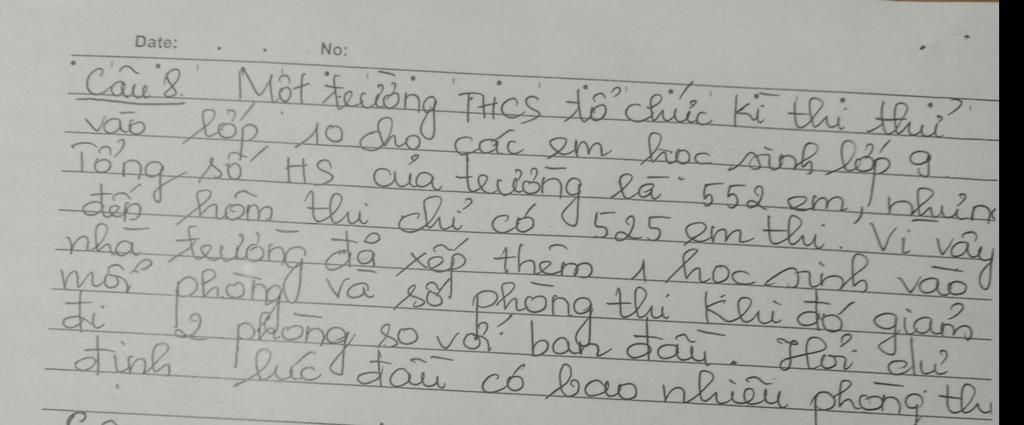 Date: . . No:
Câu 8. Một trường THCS tổ chức kì thi thử
vào lớp 10 cho các em học sinh lớp 9
Tổng số HS của trường là 552 em, nhưn
đến hôm thi chỉ có 525 em thi. Vì vậy
nhà trường đã xếp thêm 1 học sinh vào
mỗi phòng và số phòng thi khi đó giảm
đi 2 phòng so với ban đầu. Hỏi dự
định lúc đầu có bao nhiêu phòng th